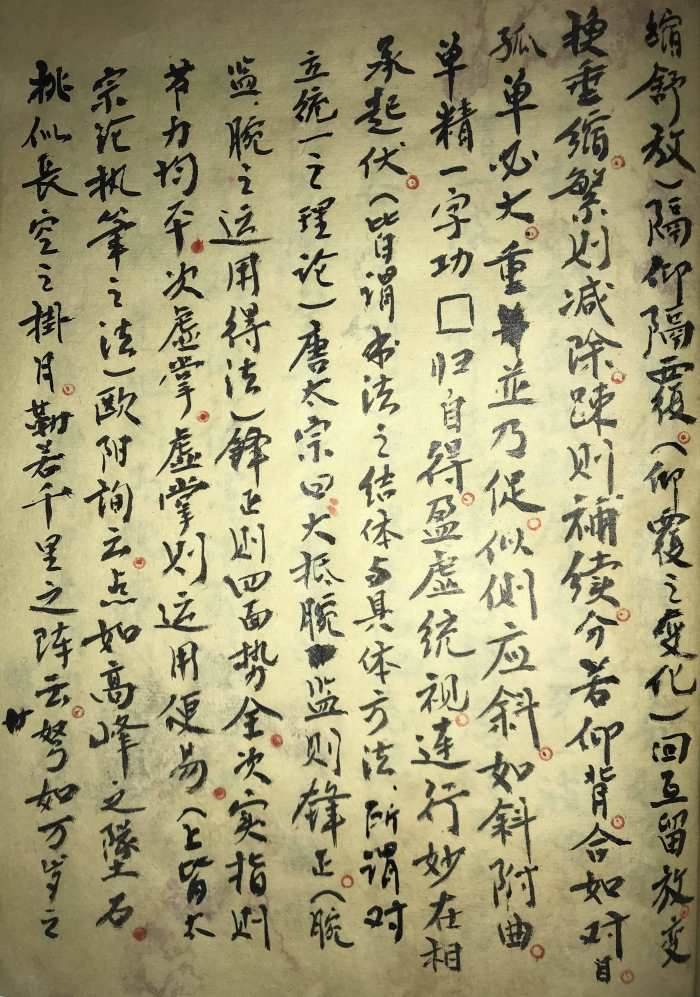 縮舒放）隔仰隔覆。（仰覆之变化）回互留放变
换垂缩。繁则减除。疎则補续。分若仰背。合如对目。
孤单必大。重並乃促。似侧应斜。如斜附曲。
单精一字功□归自得。盈虚统视。连行妙在相
承起伏。（皆谓书法之结体与具体方法、所谓对
立统一之理论）唐太宗曰。大抵腕监则锋正。（腕
监、腕之运用得法）锋正则四面势全。次实指则
节力均平。次虚掌。虚掌则运用便易。（上皆太
宗论执笔之法）欧附询云。点如高峰之墜石。
桃似長空之掛月。勒若千里之阵云。弩如万岁之